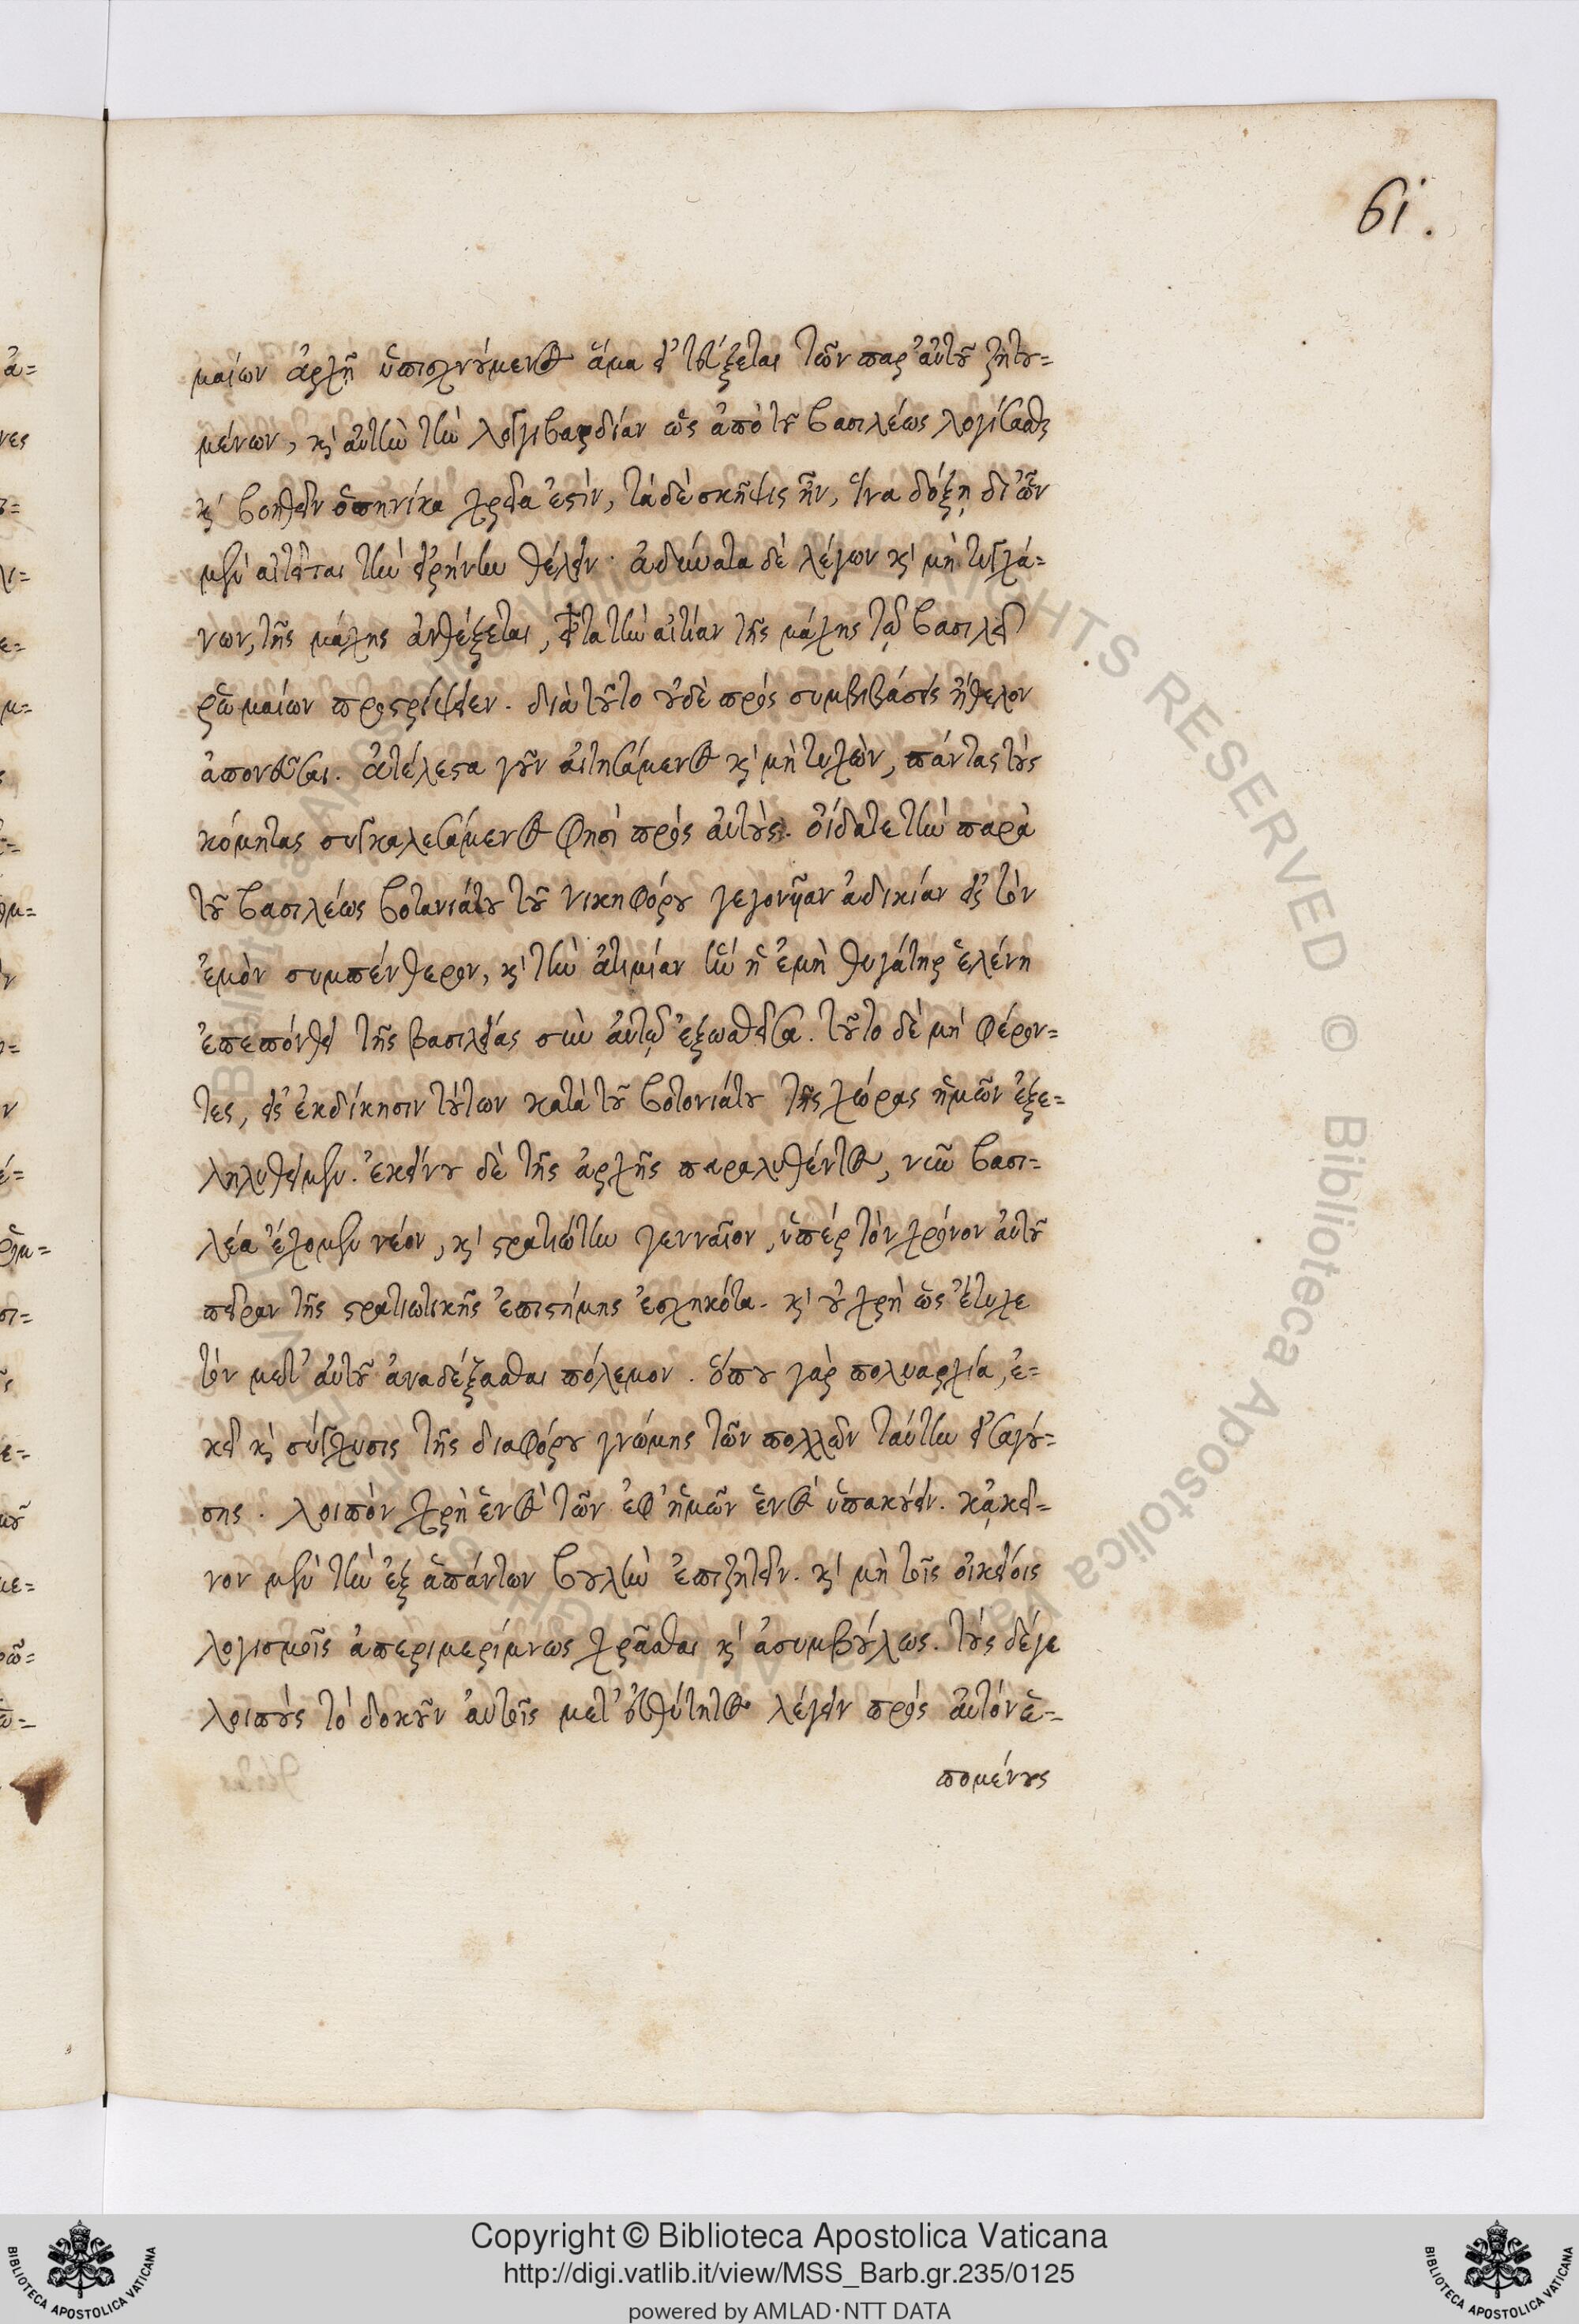 61.
μαίων ἀρχῇ ὑπισχνούμενος ἅμα εἰ τεύξεται τῶν παρ' αὐτοῦ ζητου=
μένων, καὶ αὐτὴν τὴν λογγιβαρδίαν ὡς ἀπὸ τοῦ βασιλέως λογίσασθαι
καὶ βοηθεῖν ὁπηνίκα χρεία ἐστὶν, τὰ δὲ σκῆψις ἦν, ἵνα δόξῃ δι' ὧν
μὲν αἰτεῖται τὴν εἰρήνην θέλειν· ἀδύνατα δὲ λέγων καὶ μὴ τυγχά=
νων, τῆς μάχης ἀνθέξεται, εἶτα τὴν αἰτίαν τῆς μάχης τῷ βασιλεῖ
ῥωμαίων προσρίψειεν. διὰ τοῦτο οὐδὲ πρὸς συμβιβάσεις ἤθελον
ἀπονεῦσαι. ἀτέλεστα γοῦν αἰτησάμενος καὶ μὴ τυχὼν, πάντας τοὺς
κόμητας συγκαλεσάμενος φησὶ πρὸς αὐτούς. οἴδατε τὴν παρὰ
τοῦ βασιλέως βοτανιάτου τοῦ νικηφόρου γεγονυῖαν ἀδικίαν εἰς τὸν
ἐμὸν συμπένθερον, καὶ τὴν ἀτιμίαν ἣν ἡ ἐμὴ θυγάτηρ ἑλένη
ἐπεπόνθει τῆς βασιλείας σὺν αὐτῷ ἐξωσθεῖσα. τοῦτο δὲ μὴ φέρον=
τες, εἰς ἐκδίκησιν τούτων κατὰ τοῦ βοτονιάτου τῆς χώρας ἡμῶν ἐξε=
ληλύθειμεν. ἐκείνου δὲ τῆς ἀρχῆς παραλυθέντος, νῦν βασι=
λέα ἔχομεν νέον, καὶ στρατιώτην γενναῖον, ὑπὲρ τὸν χρόνον αὐτοῦ
πεῖραν τῆς στρατιωτικῆς ἐπιστήμης ἐσχηκότα. καὶ οὐ χρὴ ὡς ἔτυχε
τὸν μετ' αὐτοῦ ἀναδέξασθαι πόλεμον. ὅπου γὰρ πολυαρχία, ἐ=
κεῖ καὶ σύγχυσις τῆς διαφόρου γνώμης τῶν πολλῶν ταύτην εἰσαγού=
σης. λοιπὸν χρὴ ἑνὸς τῶν ἐφ' ἡμῶν ἑνὸς ὑπακούειν. κἀκεῖ=
νον μὲν τὴν ἐξ ἁπάντων βουλὴν ἐπιζητεῖν. καὶ μὴ τοῖς οἰκείοις
λογισμοῖς ἀπεριμερίμνως χρᾶσθαι καὶ ἀσυμβούλως. τοὺς δέ γε
λοιποὺς τὸ δοκοῦν αὐτοῖς μετ' εὐθύτητος λέγειν πρὸς αὐτὸν ἑ=
πομένους
Copyright © Biblioteca Apostolica Vaticana
http://digi.vatlib.it/view/MSS_Barb.gr.235/0125
powered by AMLAD·NTT DATA